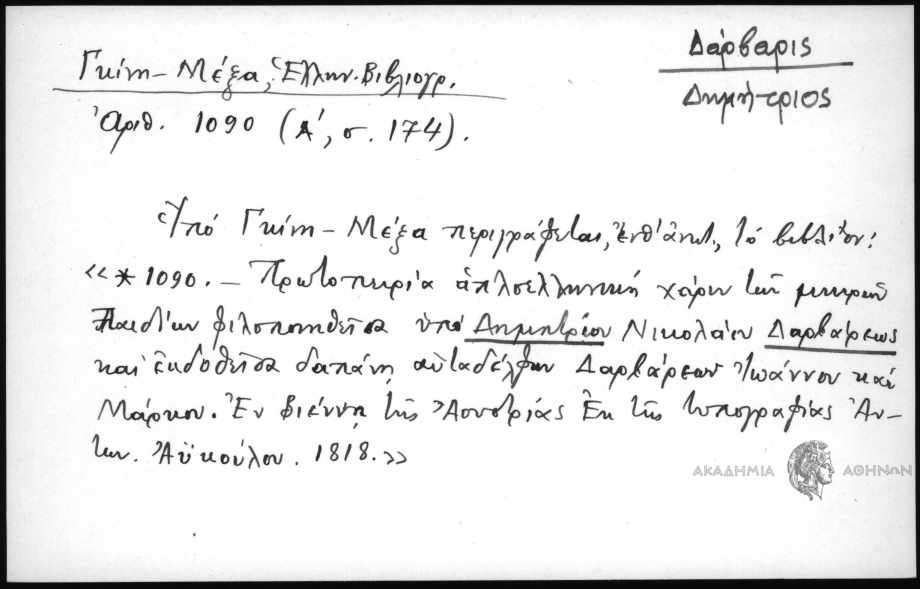 Δάρβαρις
Δημήτριος
Γκίνη – Μέξα, Ἑλλην. Βιβλιογρ.
Ἀριθ. 1090 (Α΄, σ. 174).
Ὑπό Γκίνη – Μέξα περιγράφεται, ἐνθ᾿ἀνωτ., τό βιβλίον:
«*1090. – Πρωτοπειρία ἁπλοελληνική χάριν τῶν μικρῶν
Παιδίων φιλοπονηθεῖσα ὑπό Δημητρίου Νικολάου Δαρβάρεως
καί ἐκδοθεῖσα δαπάνῃ αὐταδέλφων Δαρβάρεων Ἰωάννου καί
Μάρκου. Ἐν Βιέννῃ τῆς Ἀουστρίας Ἐκ τῆς τυπογραφίας Ἀν-
των. Ἀϋκούλου. 1818.»
ΑΚΑΔΗΜΙΑ ΑΘΗΝΩΝ